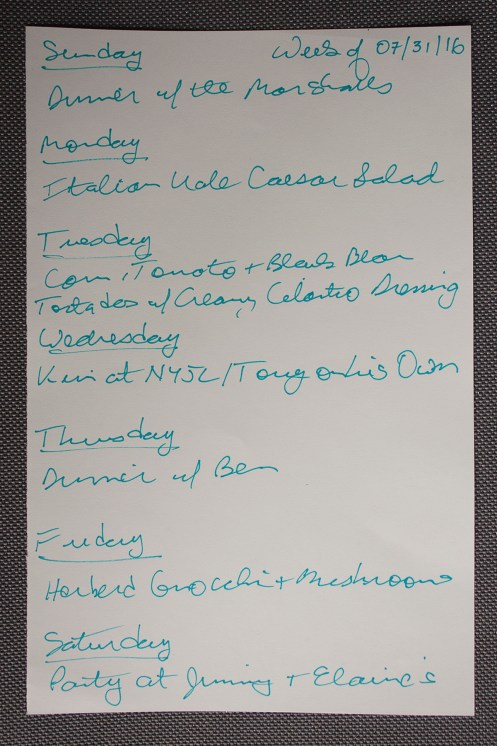 Sunday Week of 07/31/16
Dinner w/ the Marshalls
Monday
Italian Kale Caesar Salad
Tuesday
Corn, Tomato + Black Bean
Tostadas w/ Creamy Cilantro Dressing
Wednesday
Kim at NYJL/Tony on his Own
Thursday
Dinner w/ Ben
Friday
Herbed Gnocchi + Mushrooms
Saturday
Party at Jimmy + Elaine's